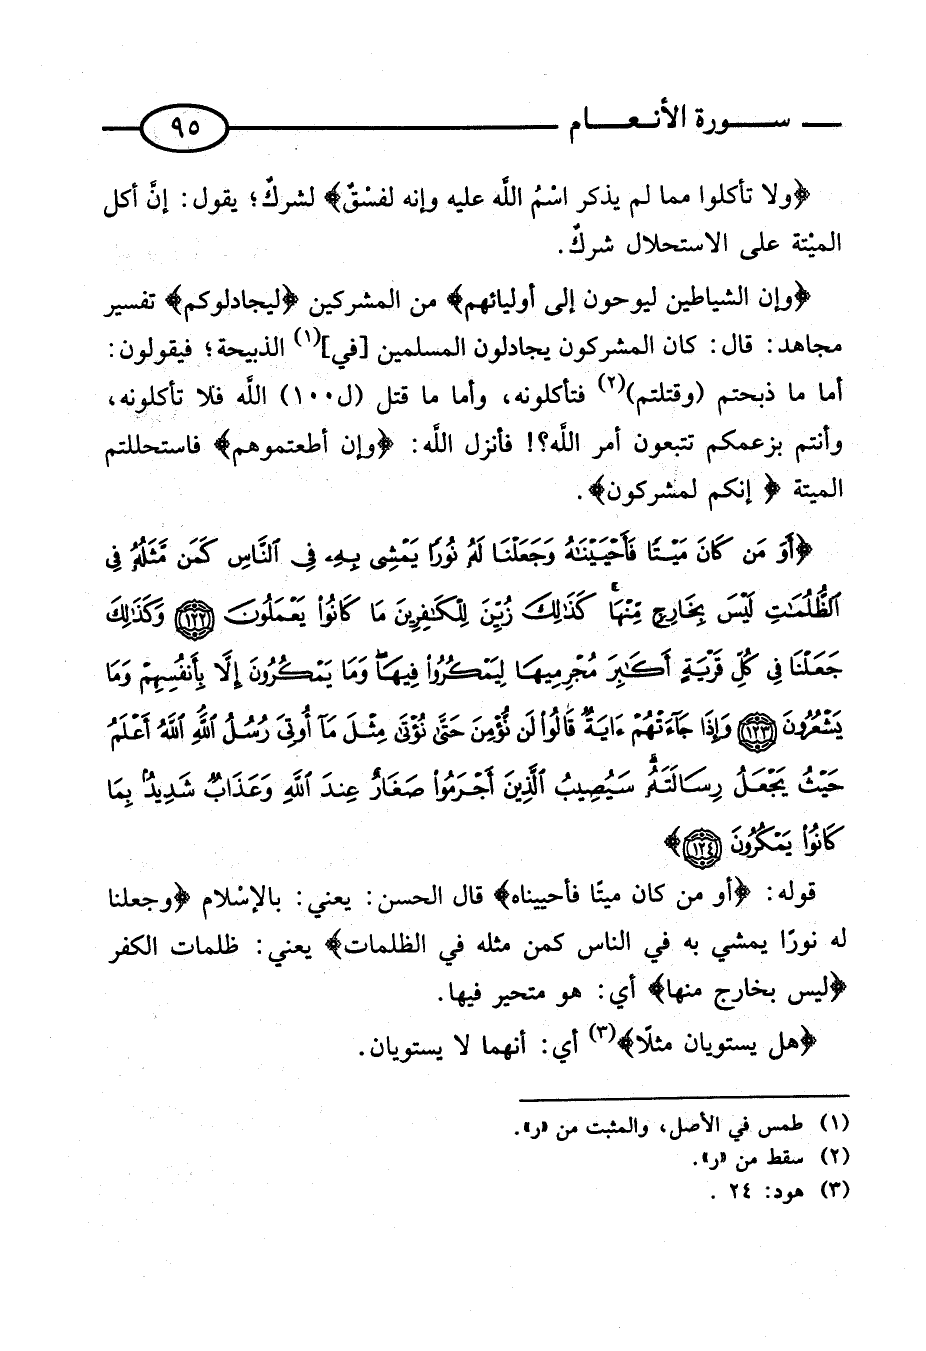 سورة الأنعام ٩٥
﴿ولا تأكلوا مما لم يذكر اسْمُ اللَّه عليه وإنه لفسْقٌ﴾ لشركٌ؛ يقول: إنَّ أكل
الميْتة على الاستحلال شركٌ.
﴿وإن الشياطين ليوحون إلى أوليائهم﴾ من المشركين ﴿ليجادلوكم﴾ تفسير
مجاهد: قال: كان المشركون يجادلون المسلمين [في](١) الذبيحة؛ فيقولون:
أما ما ذبحتم (وقتلتم)(٢) فتأكلونه، وأما ما قتل (ل١٠٠) اللَّه فلا تأكلونه،
وأنتم بزعمكم تتبعون أمر اللَّه؟! فأنزل اللَّه: ﴿وإن أطعتموهم﴾ فاستحللتم
الميتة ﴿ إنكم لمشركون﴾.
﴿أَوَ مَن كَانَ مَيْتًا فَأَحْيَيْنَٰهُ وَجَعَلْنَا لَهُۥ نُورًا يَمْشِى بِهِۦ فِى ٱلنَّاسِ كَمَن مَّثَلُهُۥ فِى
ٱلظُّلُمَٰتِ لَيْسَ بِخَارِجٍ مِّنْهَا ۚ كَذَٰلِكَ زُيِّنَ لِلْكَٰفِرِينَ مَا كَانُوا۟ يَعْمَلُونَ ١٢٢ وَكَذَٰلِكَ
جَعَلْنَا فِى كُلِّ قَرْيَةٍ أَكَٰبِرَ مُجْرِمِيهَا لِيَمْكُرُوا۟ فِيهَا ۖ وَمَا يَمْكُرُونَ إِلَّا بِأَنفُسِهِمْ وَمَا
يَشْعُرُونَ ١٢٣ وَإِذَا جَآءَتْهُمْ ءَايَةٌ قَالُوا۟ لَن نُّؤْمِنَ حَتَّىٰ نُؤْتَىٰ مِثْلَ مَآ أُوتِىَ رُسُلُ ٱللَّهِ ٱللَّهُ أَعْلَمُ
حَيْثُ يَجْعَلُ رِسَالَتَهُۥ ۗ سَيُصِيبُ ٱلَّذِينَ أَجْرَمُوا۟ صَغَارٌ عِندَ ٱللَّهِ وَعَذَابٌ شَدِيدٌۢ بِمَا
كَانُوا۟ يَمْكُرُونَ ١٢٤﴾
قوله: ﴿أو من كان ميتًا فأحييناه﴾ قال الحسن: يعني: بالإسْلام ﴿وجعلنا
له نورًا يمشي به في الناس كمن مثله في الظلمات﴾ يعني: ظلمات الكفر
﴿ليس بخارج منها﴾ أي: هو متحير فيها.
﴿هل يستويان مثلًا﴾(٣) أي: أنهما لا يستويان.
(١) طمس في الأصل، والمثبت من «ر».
(٢) سقط من «ر».
(٣) هود: ٢٤ .